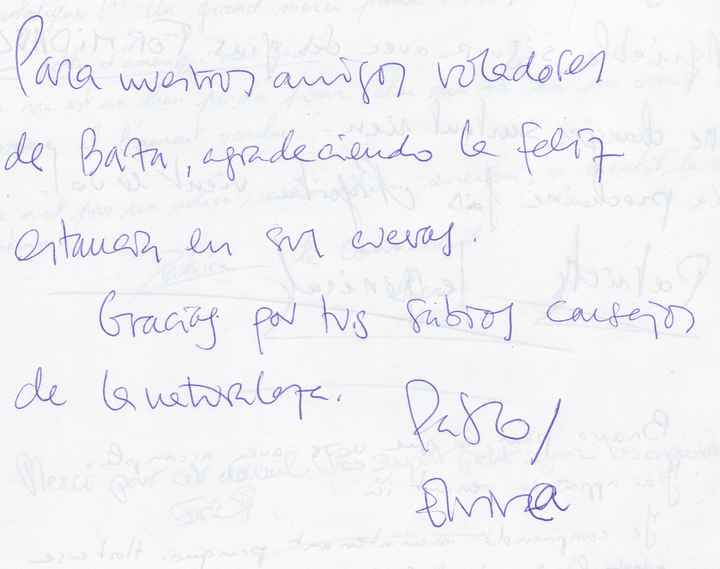 Para nuestros amigos voladores
de Baza, agradeciendo la feliz
estancia en sus cuevas.
Gracias por tus sabios consejos
de la naturaleza.
Pablo/
Elvira